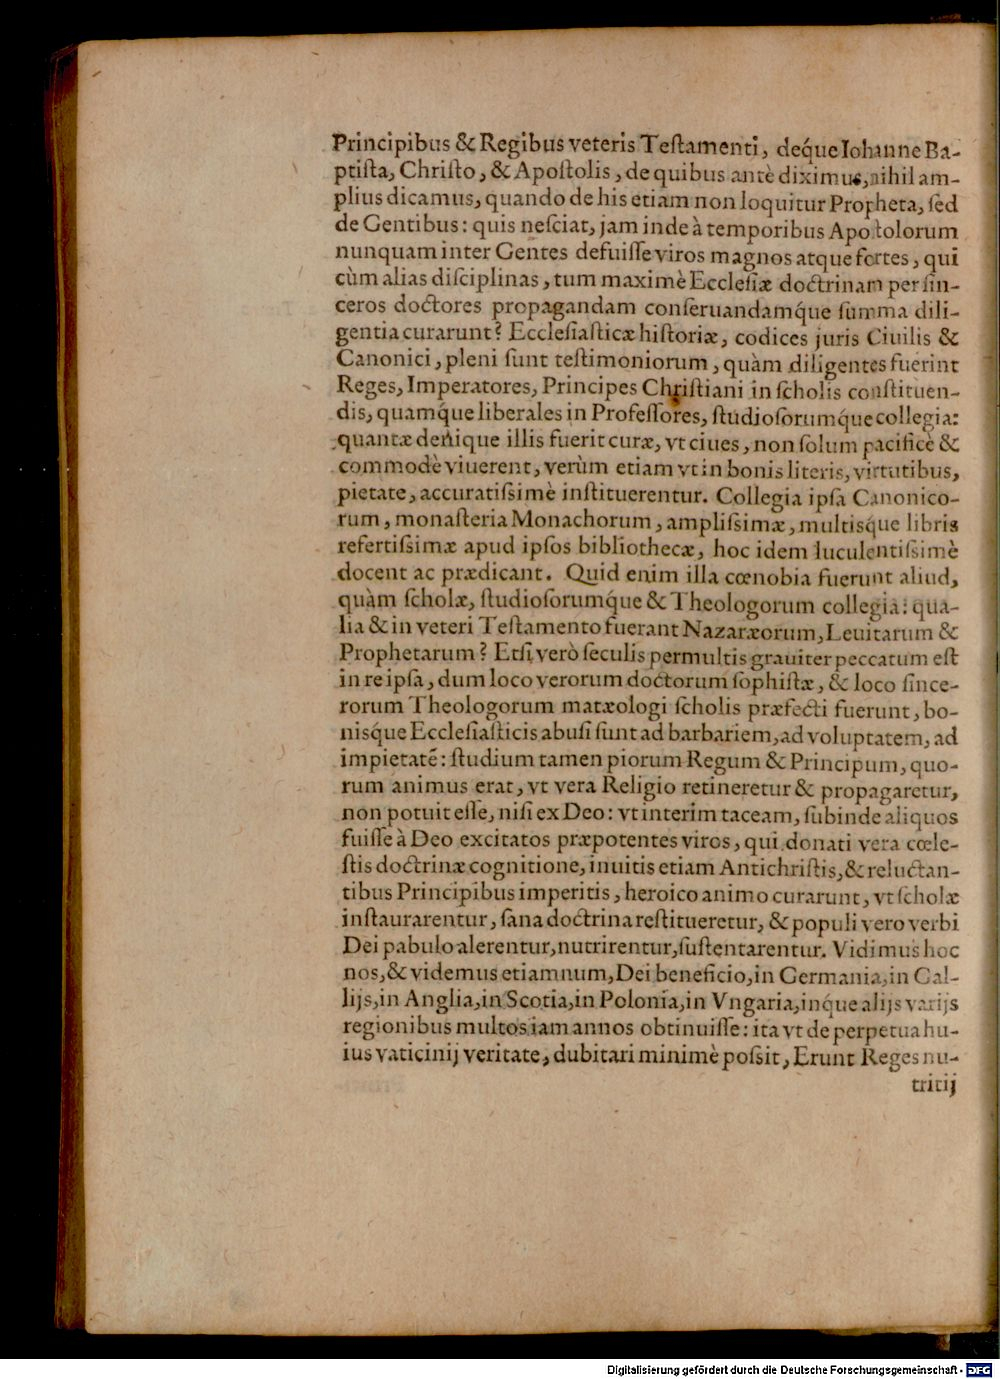 Principibus & Regibus veteris Teſtamenti, deq́ue Iohanne Ba-
ptiſta, Chriſto, & Apoſtolis, de quibus antè diximus, nihil am-
plius dicamus, quando de his etiam non loquitur Propheta, ſed
de Gentibus: quis neſciat, jam inde à temporibus Apoſtolorum
nunquam inter Gentes defuiſſe viros magnos atque fortes, qui
cùm alias diſciplinas, tum maximè Eccleſiæ doctrinam per ſin-
ceros doctores propagandam conſeruandamq́ue ſumma dili-
gentia curarunt? Eccleſiaſticæ hiſtoriæ, codices juris Ciuilis &
Canonici, pleni ſunt teſtimoniorum, quàm diligentes fuerint
Reges, Imperatores, Principes Chriſtiani in ſcholis conſtituen-
dis, quamq́ue liberales in Profeſſores, ſtudioſorumq́ue collegia:
quantæ denique illis fuerit curæ, vt ciues, non ſolum pacificè &
commodè viuerent, verùm etiam vt in bonis literis, virtutibus,
pietate, accuratiſsimè inſtituerentur. Collegia ipſa Canonico-
rum, monaſteria Monachorum, ampliſsimæ, multisque libris
refertiſsimæ apud ipſos bibliothecæ, hoc idem luculentiſsimè
docent ac prædicant. Quid enim illa cœnobia fuerunt aliud,
quàm ſcholæ, ſtudioſorumq́ue & Theologorum collegia: qua-
lia & in veteri Teſtamento fuerant Nazaræorum, Leuitarum &
Prophetarum? Etſi verò ſeculis permultis grauiter peccatum eſt
in re ipſa, dum loco verorum doctorum ſophiſtæ, & loco ſince-
rorum Theologorum matæologi ſcholis præfecti fuerunt, bo-
nisq́ue Eccleſiaſticis abuſi ſunt ad barbariem, ad voluptatem, ad
impietatē: ſtudium tamen piorum Regum & Principum, quo-
rum animus erat, vt vera Religio retineretur & propagaretur,
non potuit eſſe, niſi ex Deo: vt interim taceam, ſubinde aliquos
fuiſſe à Deo excitatos præpotentes viros, qui donati vera cœle-
ſtis doctrinæ cognitione, inuitis etiam Antichriſtis, & reluctan-
tibus Principibus imperitis, heroico animo curarunt, vt ſcholæ
inſtaurarentur, ſana doctrina reſtitueretur, & populi vero verbi
Dei pabulo alerentur, nutrirentur, ſuſtentarentur. Vidimus hoc
nos, & videmus etiamnum, Dei beneficio, in Germania, in Gal-
lijs, in Anglia, in Scotia, in Polonia, in Vngaria, inq́ue alijs varijs
regionibus multos iam annos obtinuiſſe: ita vt de perpetua hu-
ius vaticinij veritate, dubitari minimè poſsit, Erunt Reges nu-
tritij
Digitalisierung gefördert durch die Deutsche Forschungsgemeinschaft - DFG